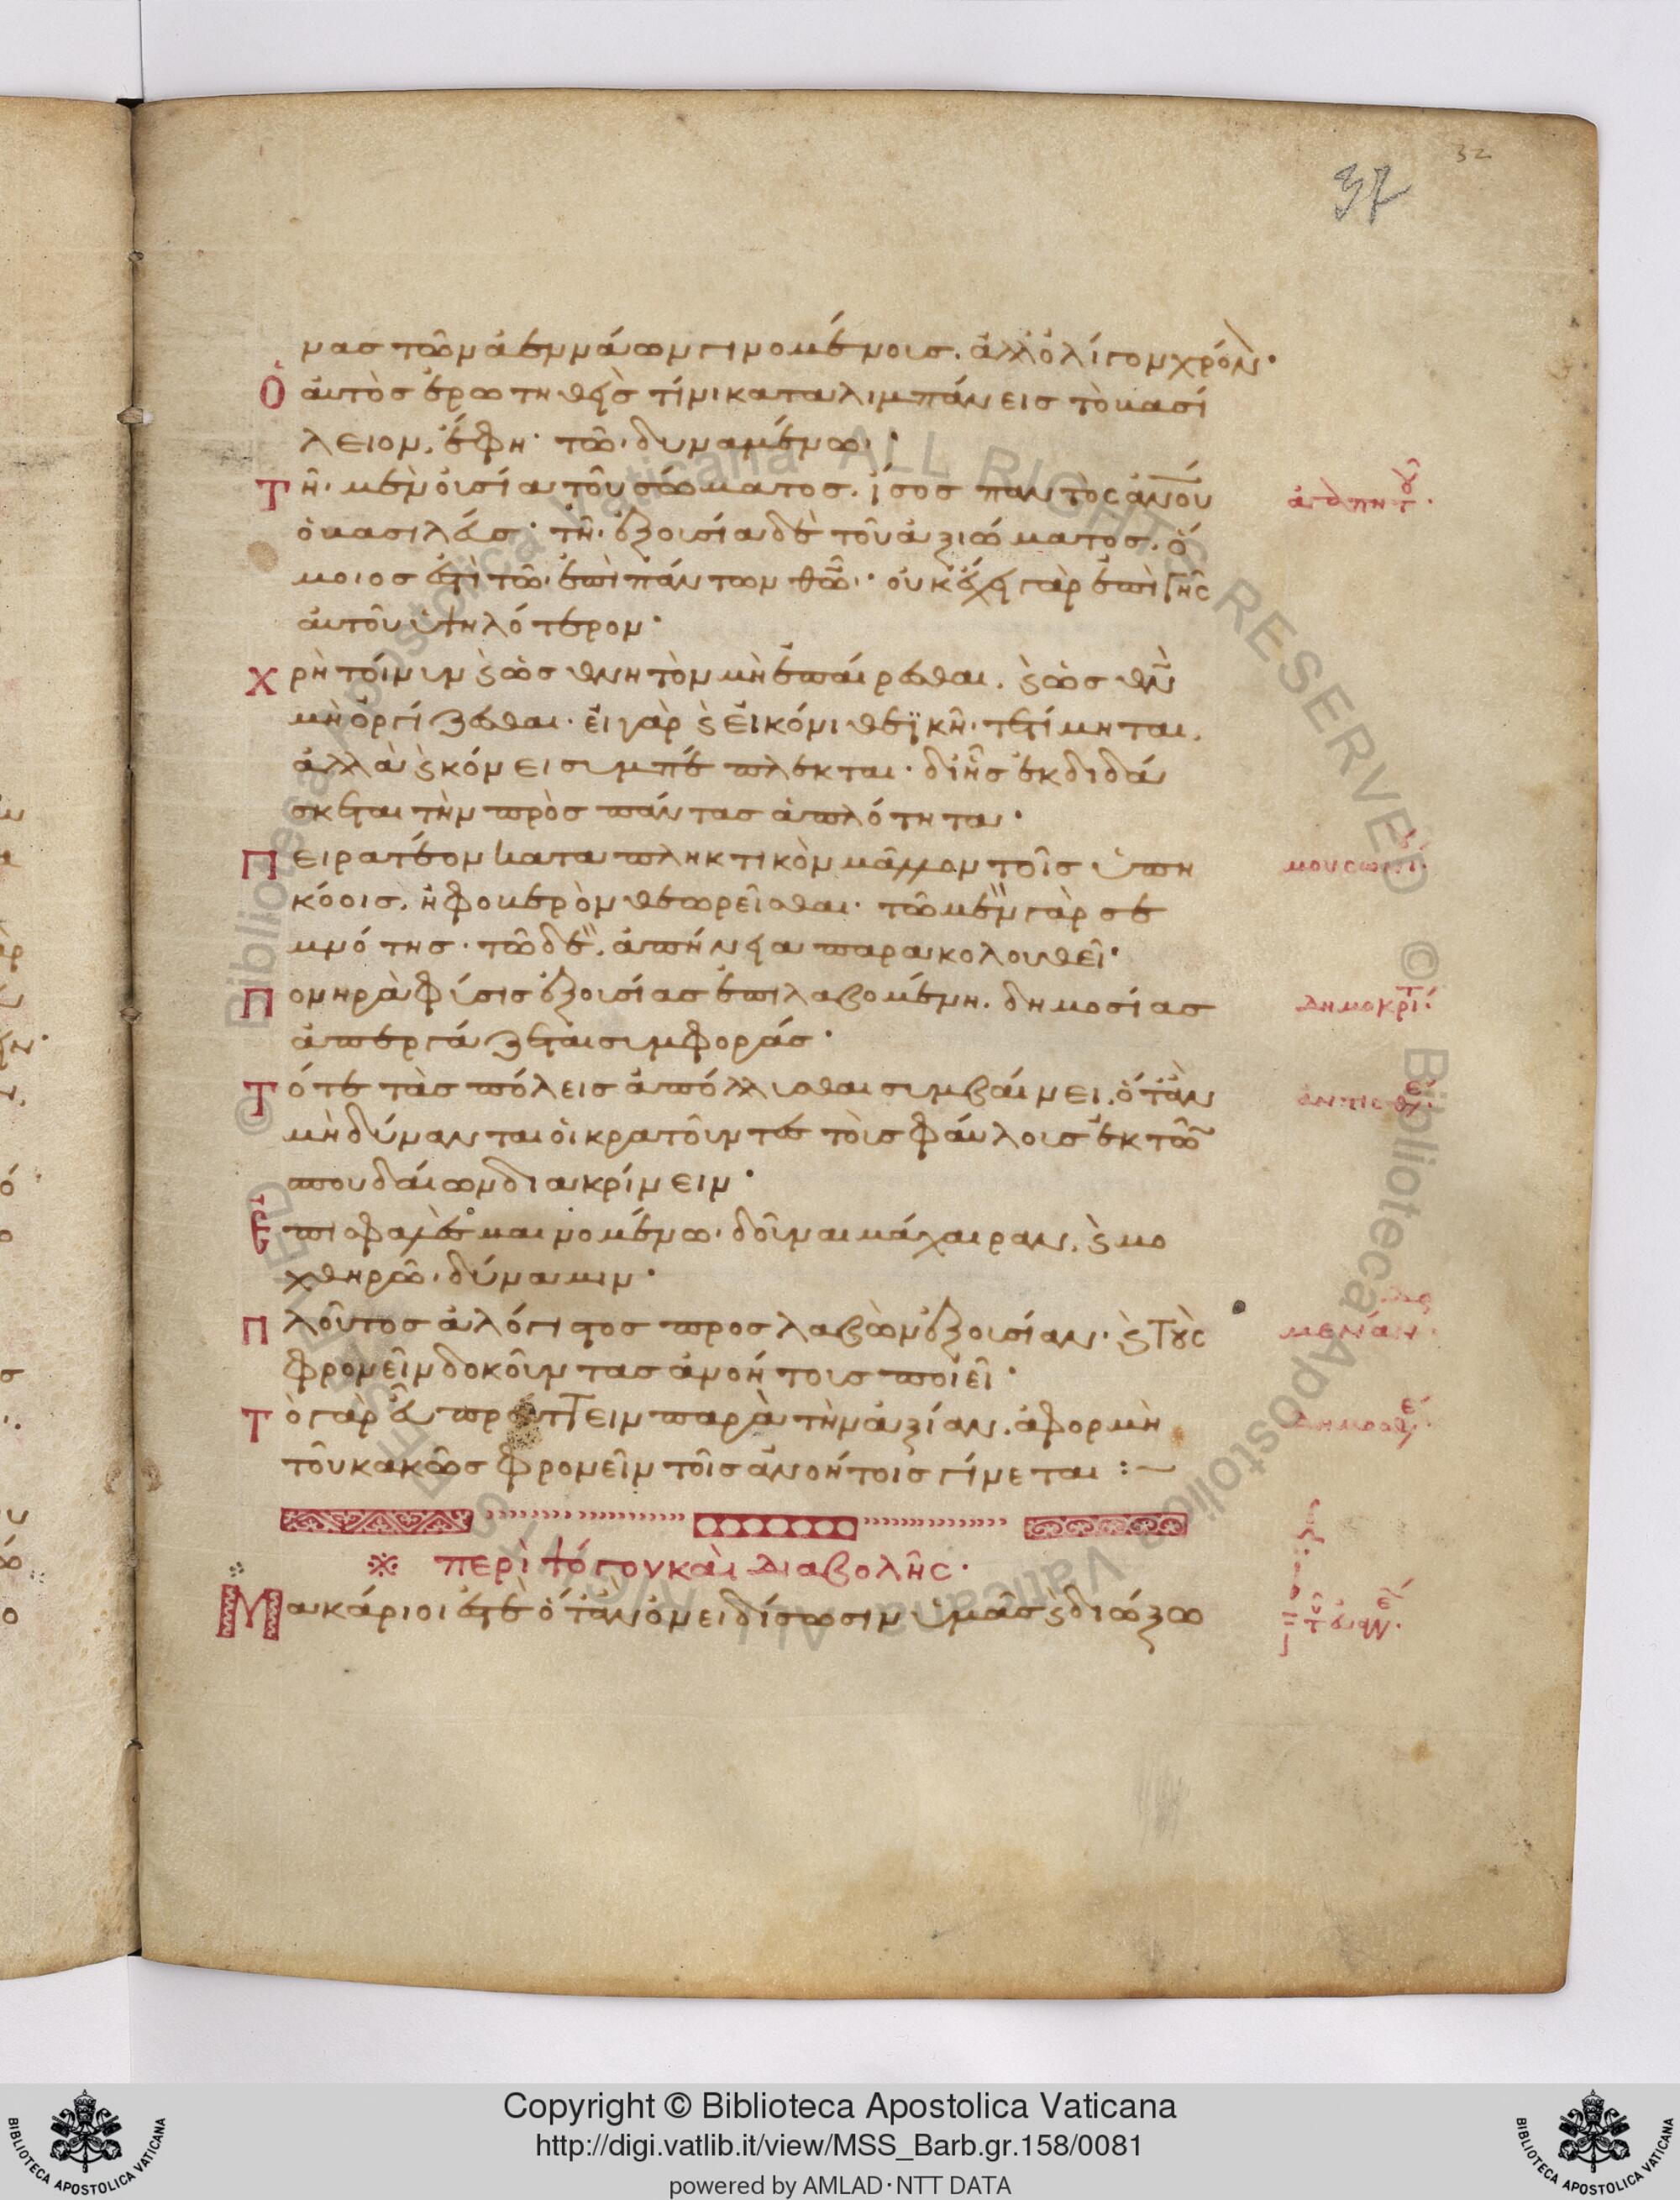 32
37
νας τῶν ἀεννάων γινομένοις. ἀλλ' ὀλίγον χρόν·
Ὁ αὐτὸς ἐρωτηθεὶς τίνι καταλιμπάνεις τὸ βασί
λειον, ἔφη· τῷ δυναμένῳ·
Τῇ μὲν οὐσίᾳ τοῦ σώματος, ἴσος παντὸς ἀνου
ὁ βασιλεύς· τῇ ἐξουσίᾳ δὲ τοῦ ἀξιώματος, ὅ
μοιος ἐστὶ τῷ ἐπὶ πάντων θῶ· οὐκ ἔχει γὰρ ἐπὶ γῆς
αὐτοῦ ὑψηλότερον·
Χρὴ τοίνυν ϗ ὡς θνητὸν μὴ ἐπαίρεσθαι, ϗ ὡς θν
μὴ ὀργίζεσθαι· εἰ γὰρ ϗ εἰκόνι θεϊκῇ τετίμηται,
ἀλλὰ ϗ κόνει συμπέπλεκται· δι' ἧς ἐκδιδά
σκεται τὴν πρὸς πάντας ἁπλότητα·
Πειρατέον καταπληκτικὸν μᾶλλον τοῖς ὑπη
κόοις, ἢ φοβερὸν θεωρεῖσθαι· τῶ μὲν γὰρ σε
μνότης· τῶ δὲ, ἀπήνεια παρακολουθεῖ·
Πονηρὰ φύσις ἐξουσίας ἐπιλαβομένη, δημοσίας
ἀπεργάζεται συμφοράς·
Τότε τὰς πόλεις ἀπόλλυσθαι συμβαίνει, ὅταν
μὴ δύνανται οἱ κρατοῦντες τοὶς φαύλοις ἐκ τῶ
σπουδαίων διακρίνειν·
Ἐπισφαλὲς μαινομένῳ δοῦναι μάχαιραν, ϗ μο
χθηρῷ δύναμιν·
Πλοῦτος ἀλόγιστος προσλαβὼν ἐξουσίαν· ϗ τοὺς
φρονεῖν δοκοῦντας ἀνοήτους ποιεῖ·
Τὸ γὰρ εὖ πράττειν παρὰ τὴν ἀξίαν, ἀφορμὴ
τοῦ κακῶς φρονεῖν τοῖς ἀνοήτοις γίνεται :–
※ περὶ ψόγου καὶ διαβολῆς·
Μακάριοι ἐστὲ ὅταν ὀνειδίσωσιν ὑμᾶς ϗ διώξω
ἀγαπητοῦ·
μουσωνίου·
Δημοκρίτ·
ἀντισθέ·
μενάν·
Δημοσθέ·
Copyright © Biblioteca Apostolica Vaticana
http://digi.vatlib.it/view/MSS_Barb.gr.158/0081
powered by AMLAD·NTT DATA